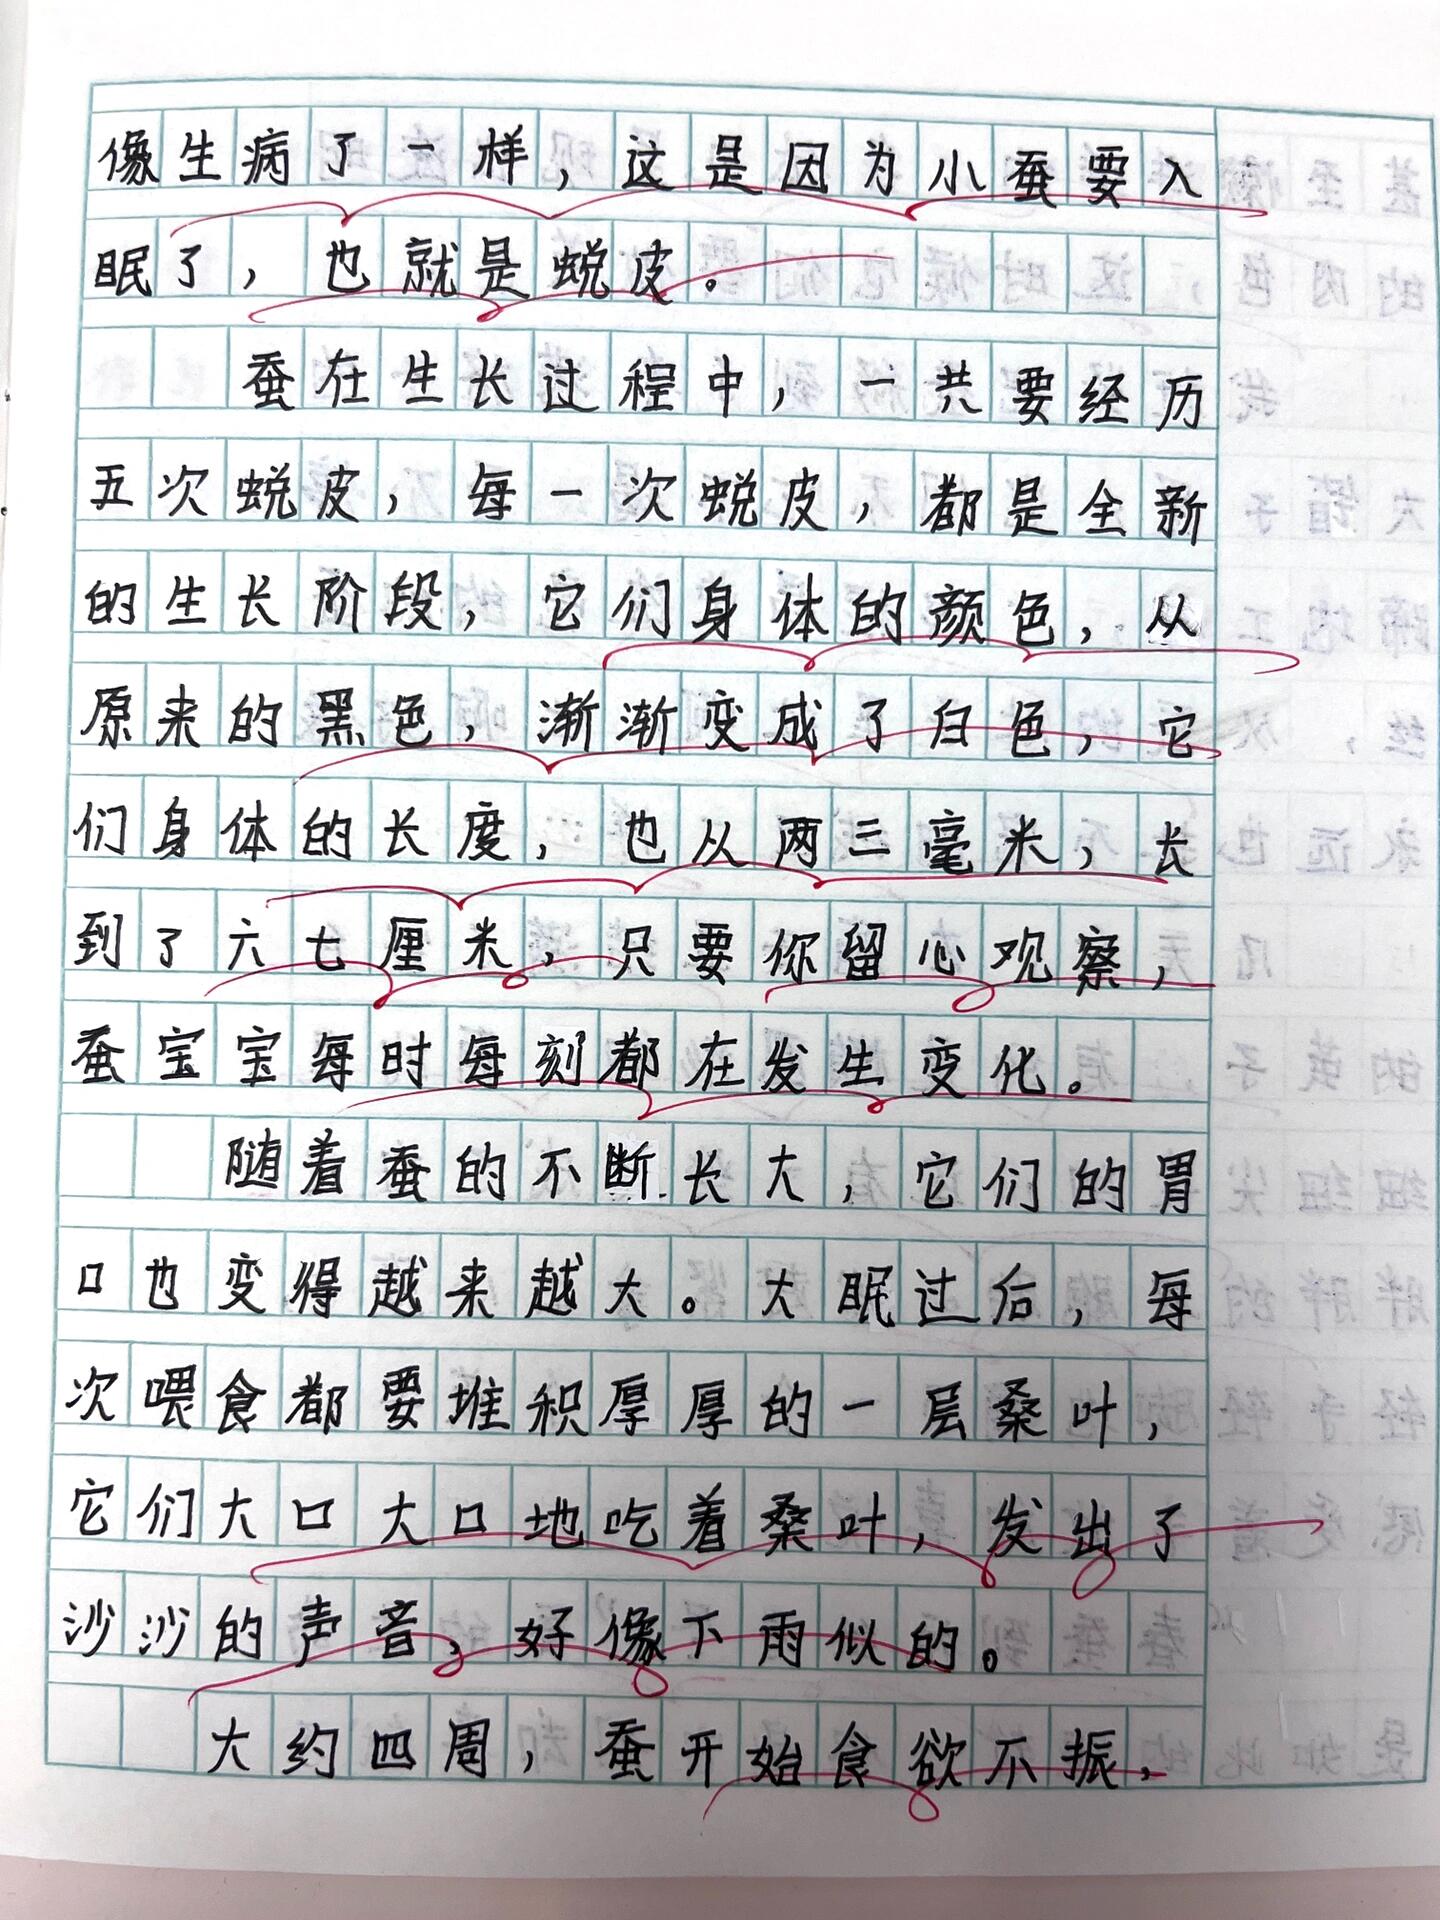 像生病了一样，这是因为小蚕要入
眠了，也就是蜕皮。
蚕在生长过程中，一共要经历
五次蜕皮，每一次蜕皮，都是全新
的生长阶段，它们身体的颜色，从
原来的黑色，渐渐变成了白色，它
们身体的长度，也从两三毫米，长
到了六七厘米，只要你留心观察，
蚕宝宝每时每刻都在发生变化。
随着蚕的不断长大，它们的胃
口也变得越来越大。大眠过后，每
次喂食都要堆积厚厚的一层桑叶，
它们大口大口地吃着桑叶，发出了
沙沙的声音，好像下雨似的。
大约四周，蚕开始食欲不振，